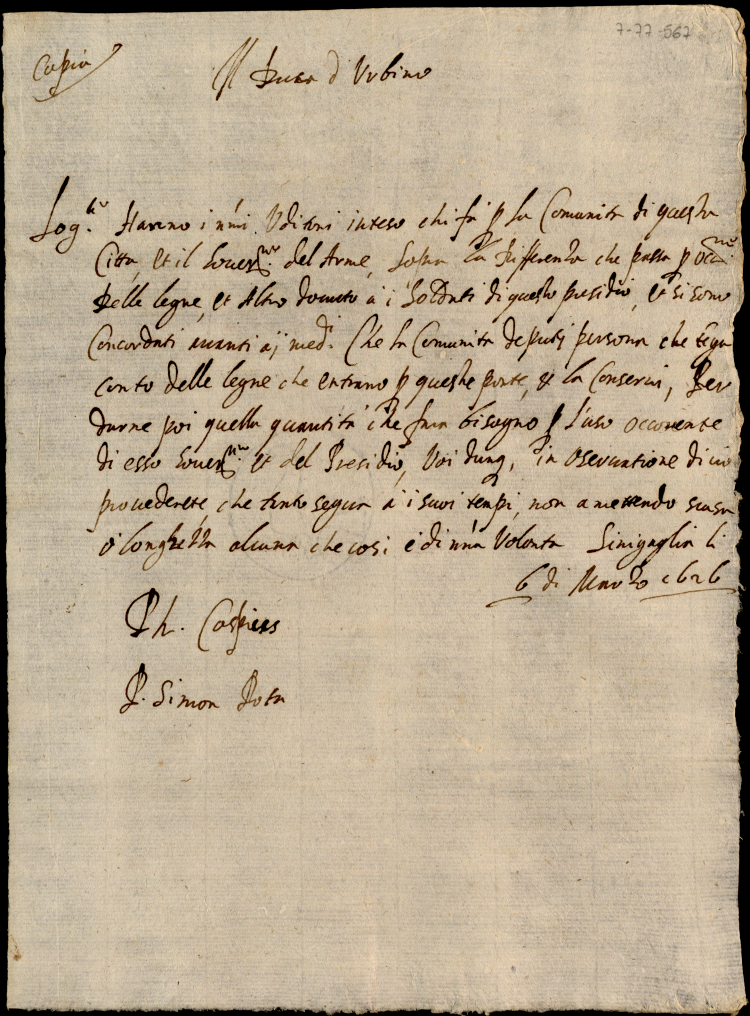 7-77-567
Copia
Il Duca d Urbino
Log.te Haveno i nri Uditori inteso chi fà p la Comunita di questa
Citta, et il Gover.re del Arme, sopra la differenza che passa p occ.ne
delle legne, et altro dovuto a i soldati di questo presidio, et si sono
Concordati avanti a i med.i Che la Comunita deputi persona che tega
conto delle legne che entrano p queste porte, et la Conservi, Per
darne poi quella quantità che farà bisogno p l'uso occorente
di esso Gover.re et del Presidio, Voi dunq, in oservatione di ciò
provederete, che tanto segua a i suoi tempi, non ametendo scusa
o longhezza alcuna che cosi è di nra Volonta Sinigaglia li
6 di Marzo 1626
P. Simon Rota